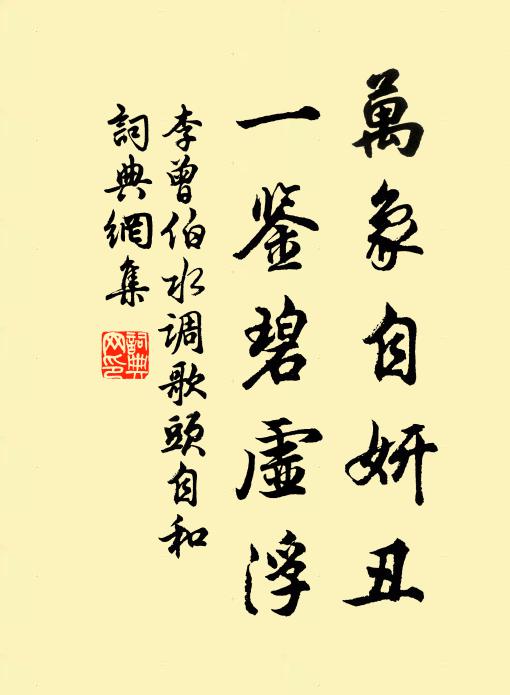 萬象自妍丑
一鉴碧虛浮
李曾伯水调歌頭自和
詞典網集
詞典
网印